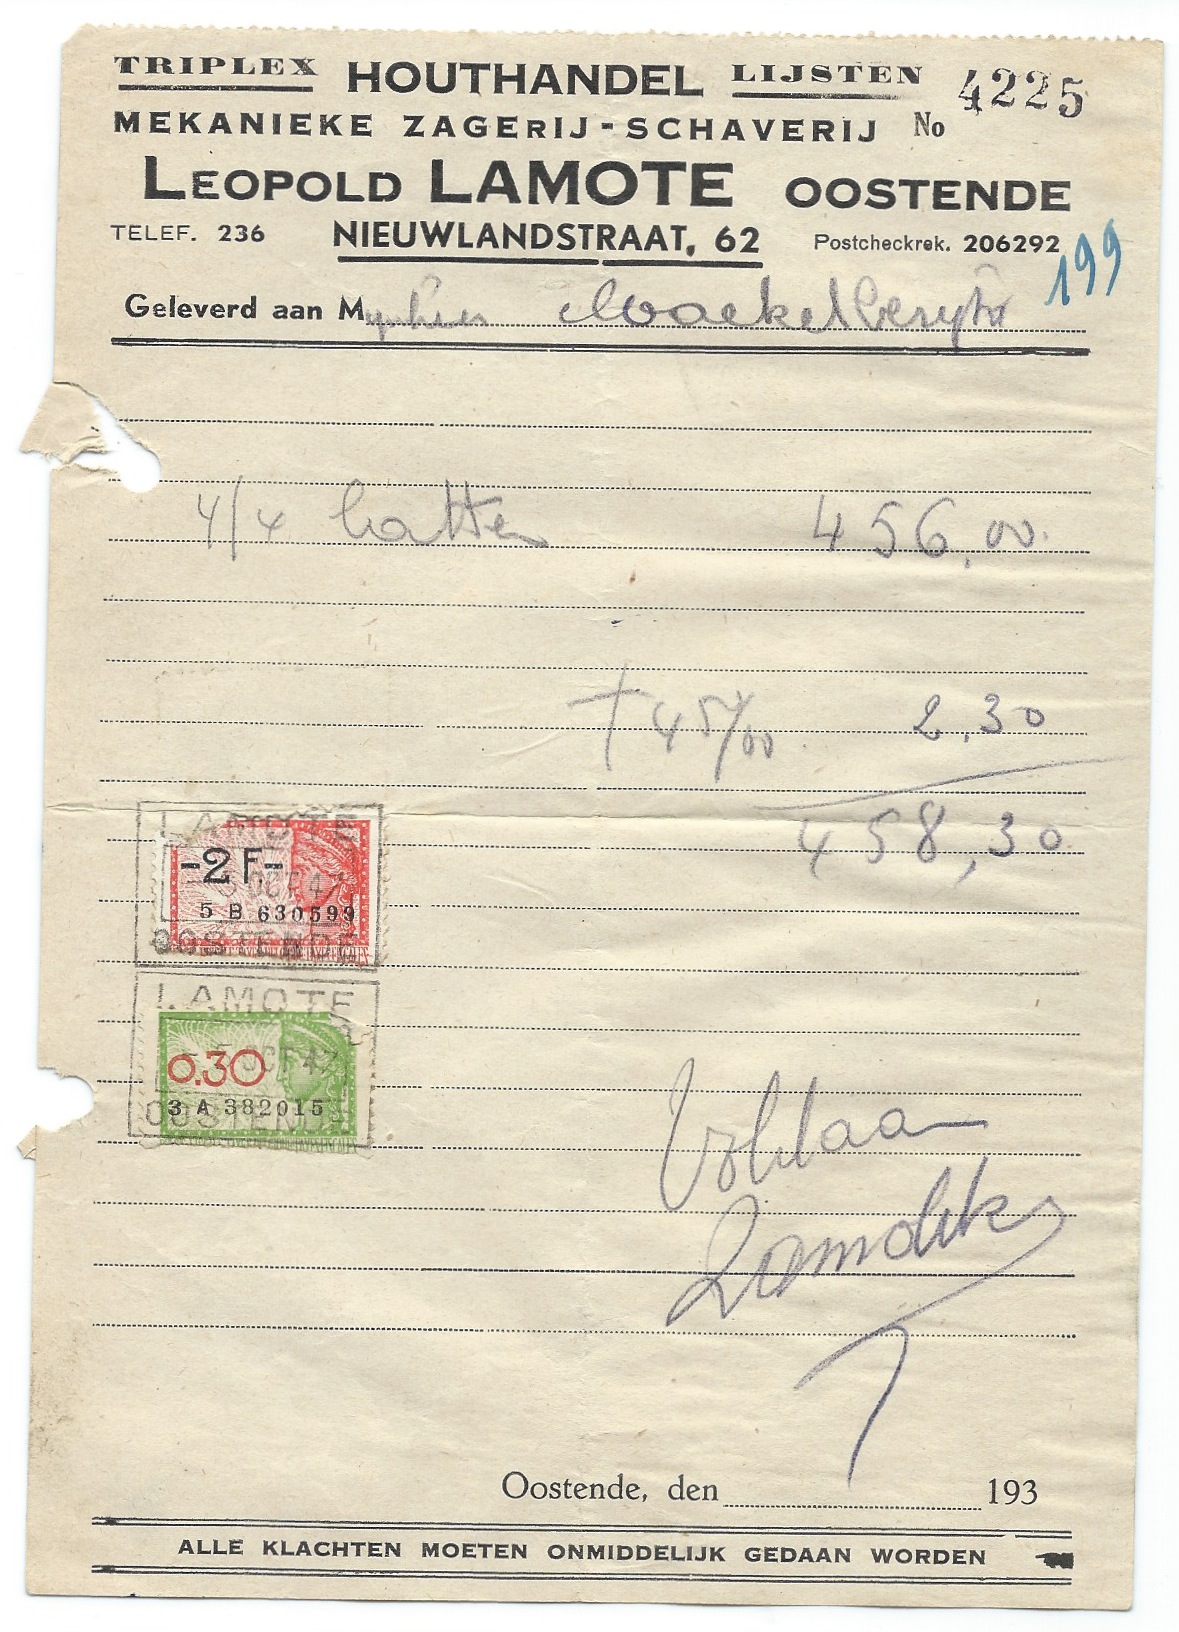 TRIPLEX HOUTHANDEL LIJSTEN
MEKANIEKE ZAGERIJ-SCHAVERIJ No 4225
LEOPOLD LAMOTE OOSTENDE
TELEF. 236 NIEUWLANDSTRAAT, 62 Postcheckrek. 206292
199
Geleverd aan M
4/4 latten 456,00
+ 4 5%00 2,30
458,30
LAMOTE
-2 F-
5 OCT 47
5 B 630599
OOSTENDE
LAMOTE
0.30
5 OCT 47
3 A 382015
OOSTENDE
Voldaan
Oostende, den 193
ALLE KLACHTEN MOETEN ONMIDDELIJK GEDAAN WORDEN